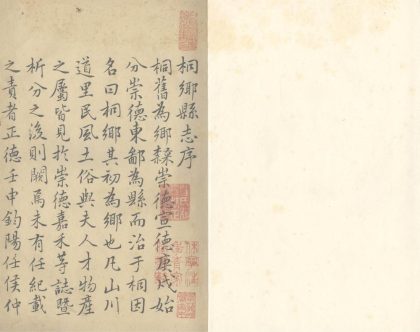 桐鄉縣志序
桐舊為鄉隸崇德宣德庚戌始
分崇德東鄙為縣而治于桐因
名曰桐鄉其初為鄉也凡山川
道里民風土俗與夫人才物產
之屬皆見於崇德嘉禾等誌暨
析分之後則闕焉未有任紀載
之責者正德壬申鈞陽任侯仲